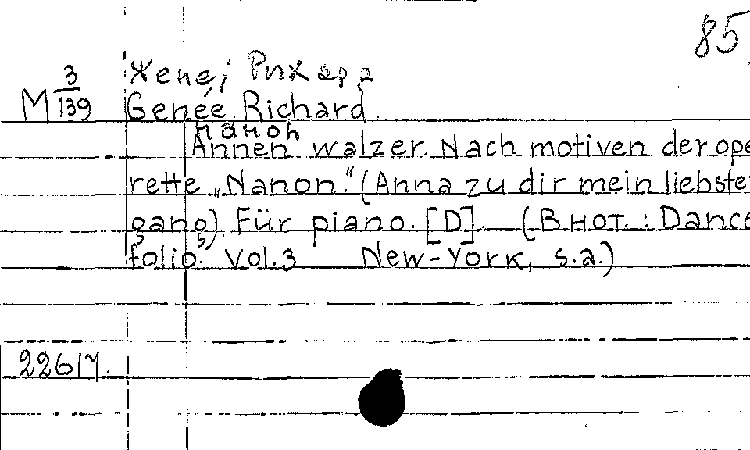 85
Жене, Рихард
M 3/139 Genée Richard
нанон
Annen walzer. Nach motiven der ope
rette „Nanon." (Anna zu dir mein liebster
gang) Für piano. [D]. (В нот.: Dance
folio. Vol. 3 New-York, s.a.)
22617.